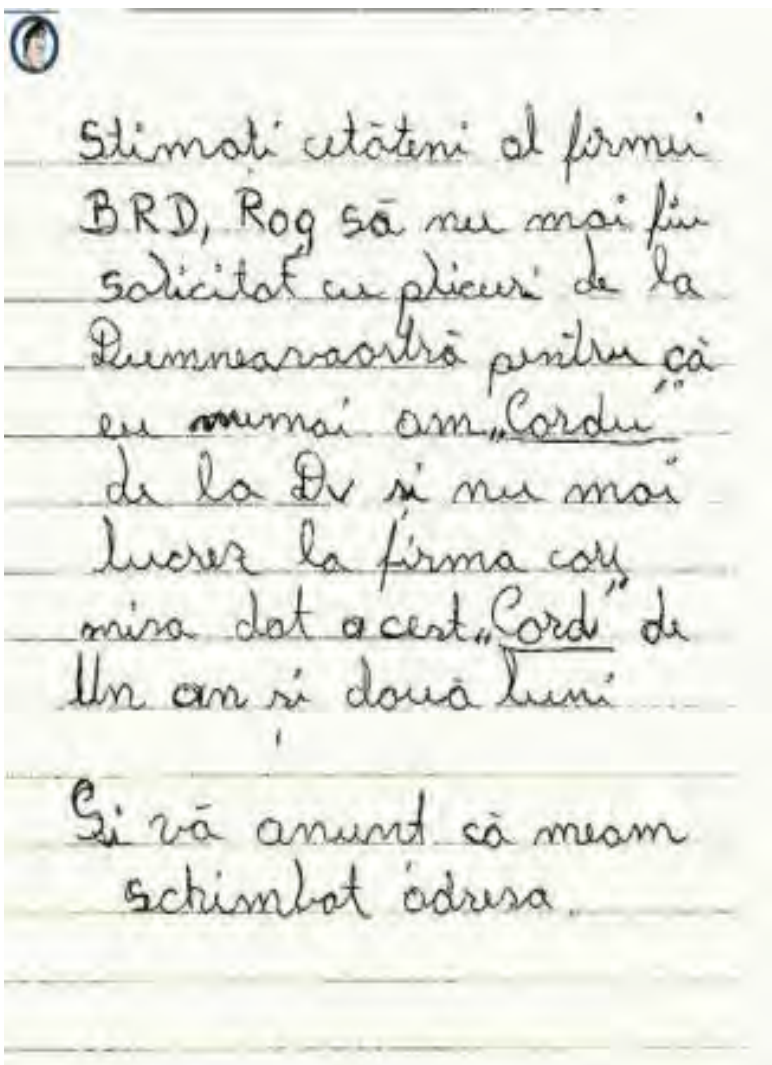 Stimați cetățeni al firmei
BRD, Rog să nu mai fiu
solicitat cu plicuri de la
Dumneavaostră pentru că
eu numai am „Cardu”
de la Dv și nu mai
lucrez la firma care
misa dat acest „Card” de
Un an și două luni
Și vă anunt că meam
schimbat adresa.